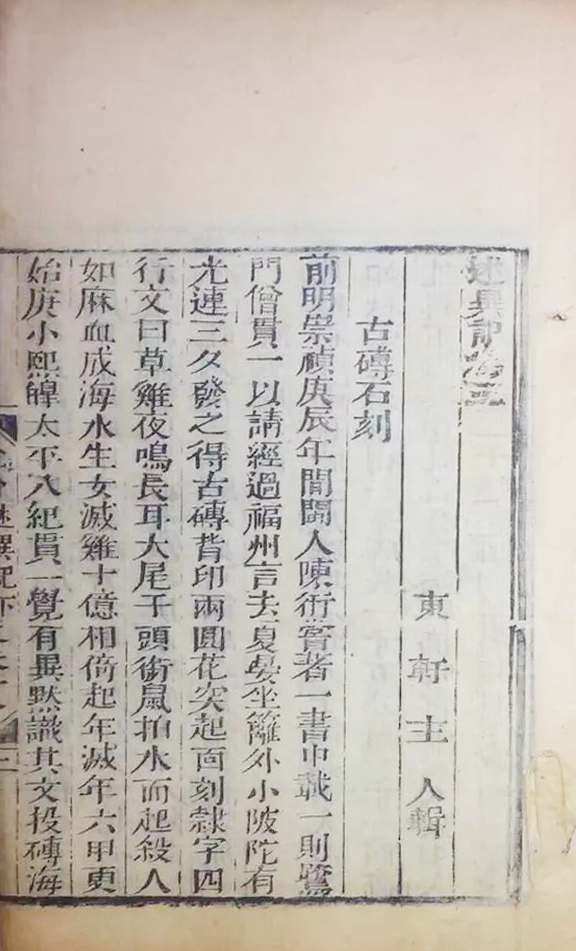 述異記卷三
東軒主人輯
古磚石刻
前明崇禎庚辰年間閩人陳衎嘗著一書中載一則鷺
門僧貫一以請經過福州言去夏晏坐籬外小陂陀有
光連三夕發之得古磚背印兩圓花突起面刻隸字四
行文曰草雞夜鳴長耳大尾干頭銜鼠拍水而起殺人
如麻血成海水生女滅雞十億相倚起年滅年六甲更
始庚小熙皞太平八紀貫一覺有異默識其文投磚海